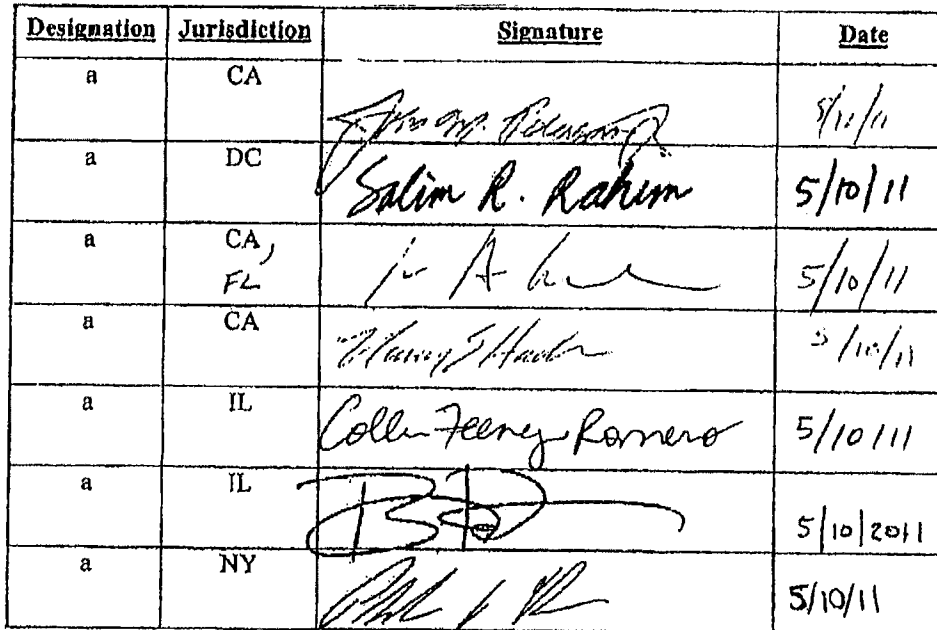 Designation Jurisdiction Signature Date
a CA
a DC Salim R. Rahim 5/10/11
a CA,
FL 5/10/11
a CA 5/10/11
a IL Colleen Feeney Romero 5/10/11
a IL 5/10/2011
a NY 5/10/11